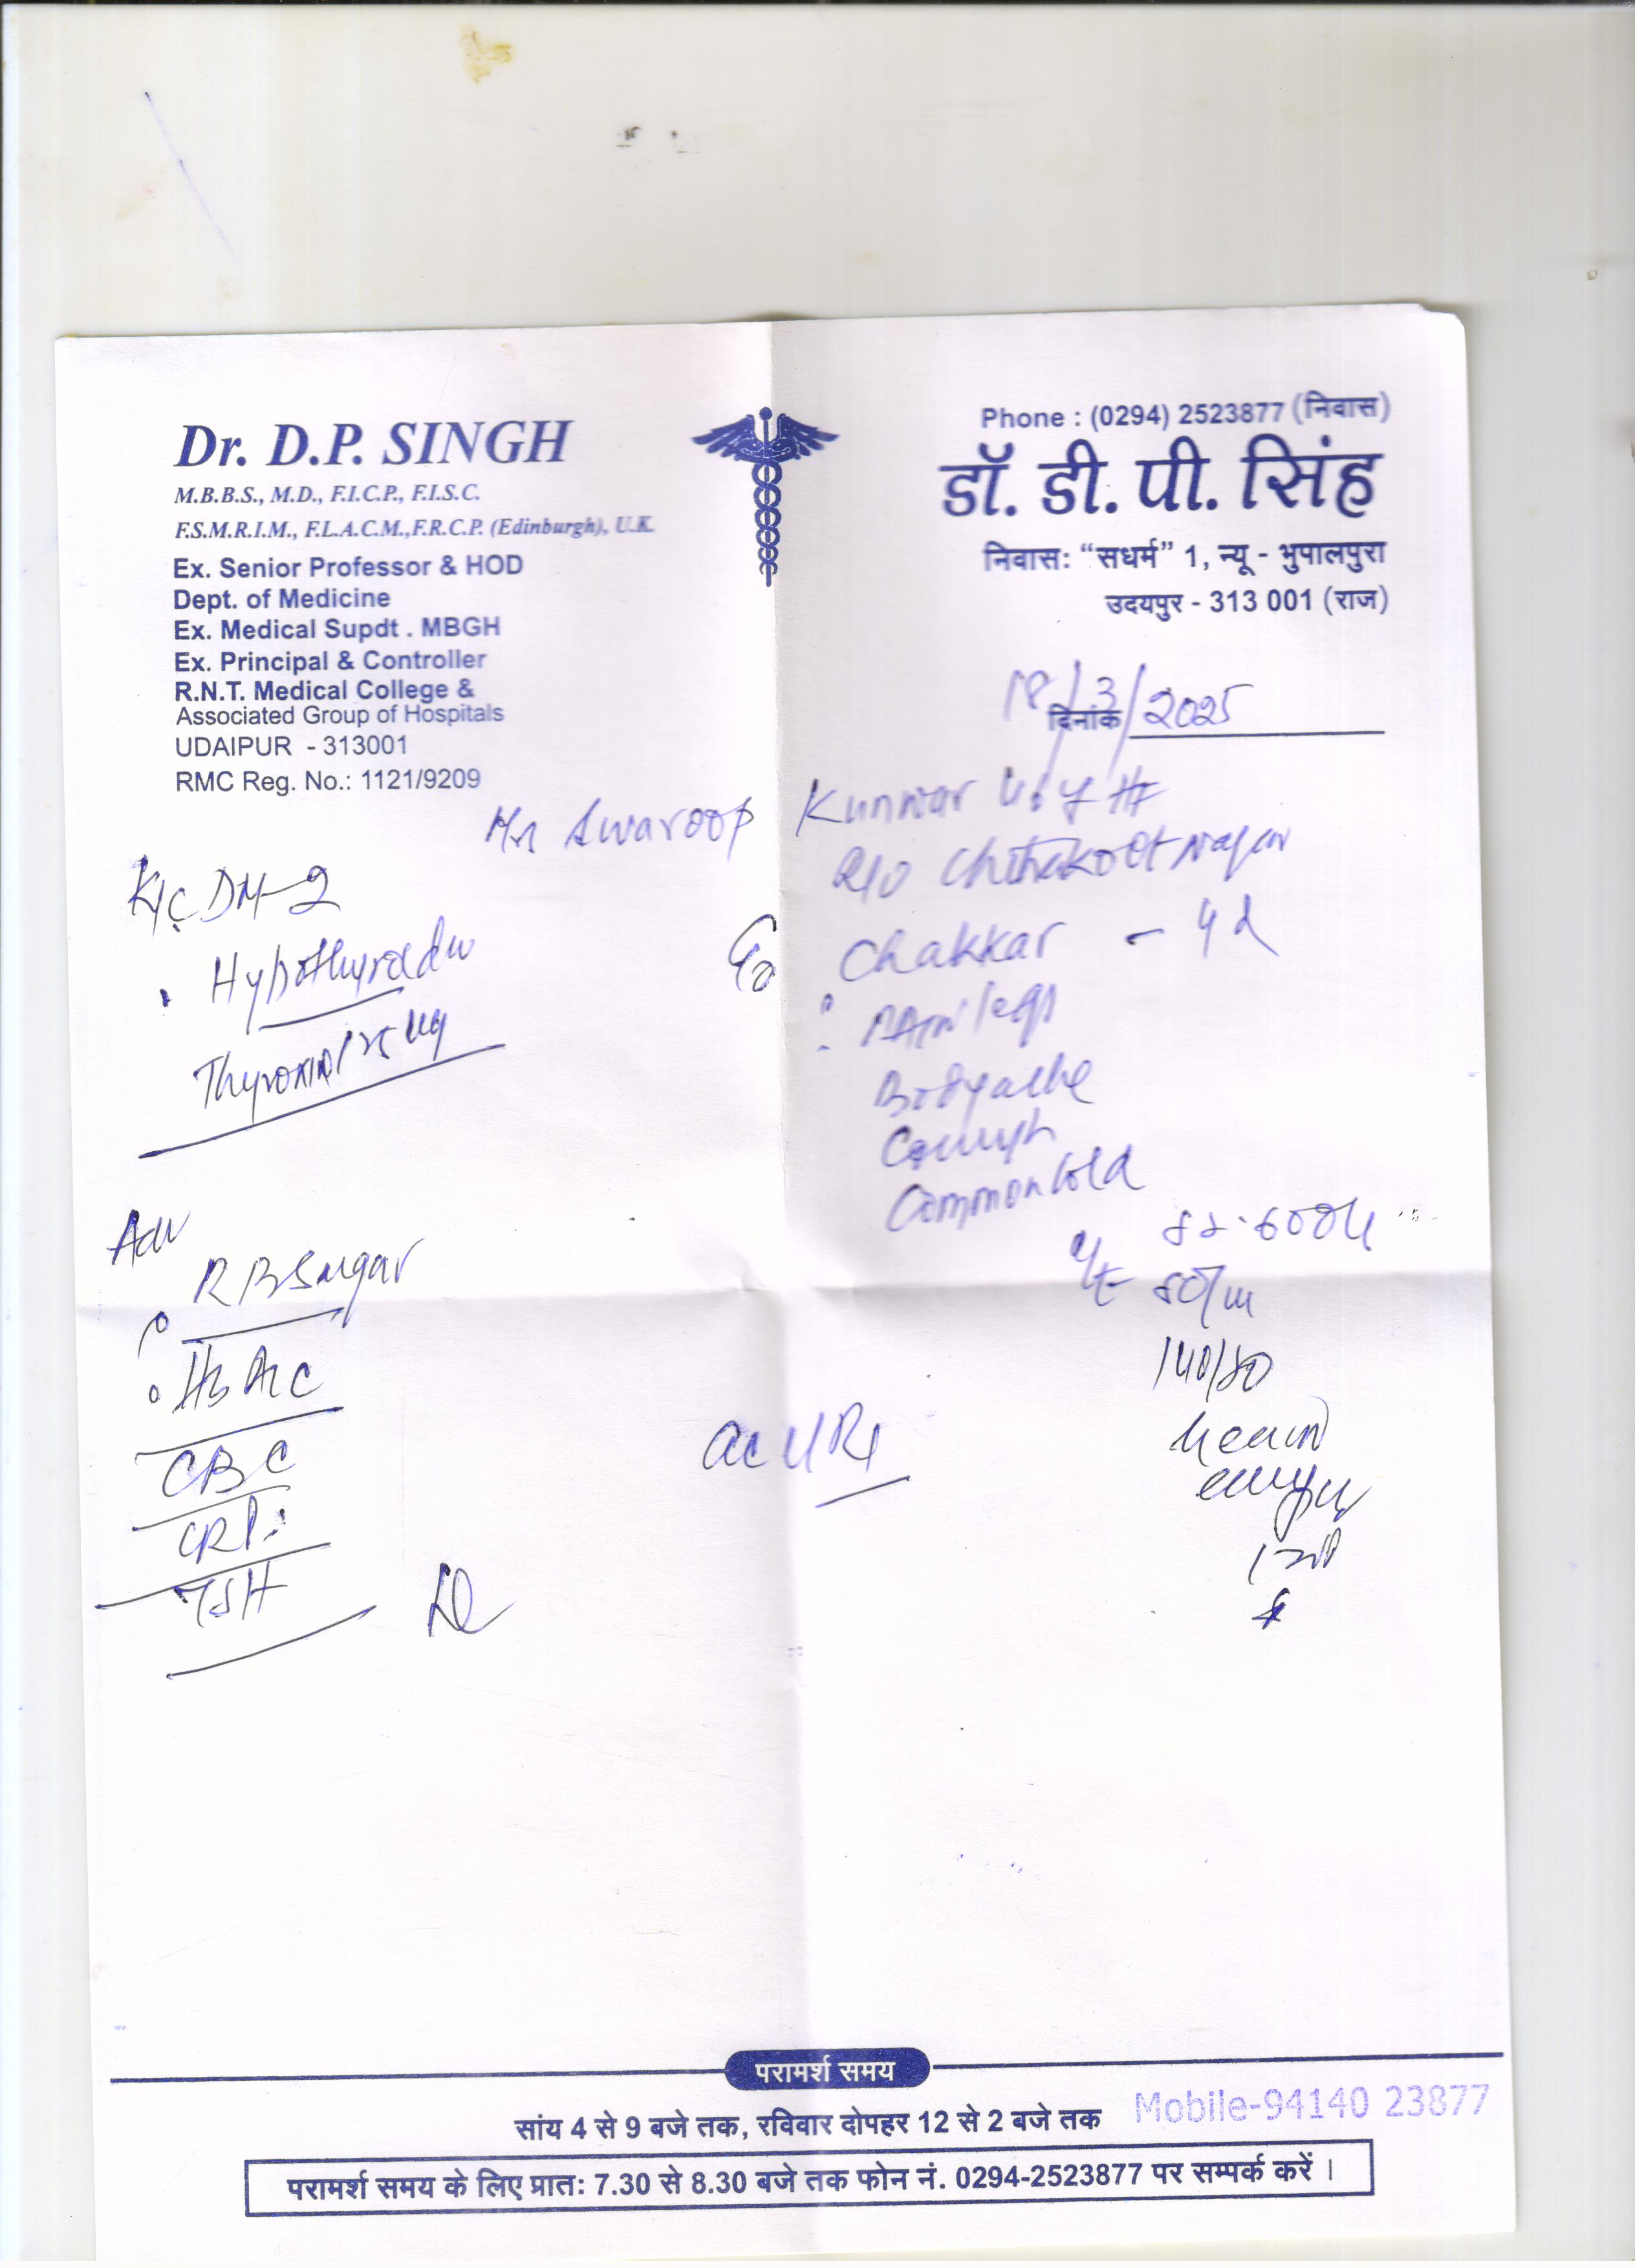 Phone : (0294) 2523877 (निवास)
Dr. D.P. SINGH
M.B.B.S., M.D., F.I.C.P., F.I.S.C.
F.S.M.R.I.M., F.L.A.C.M.,F.R.C.P. (Edinburgh), U.K.
Ex. Senior Professor & HOD
Dept. of Medicine
Ex. Medical Supdt . MBGH
Ex. Principal & Controller
R.N.T. Medical College &
Associated Group of Hospitals
UDAIPUR - 313001
RMC Reg. No.: 1121/9209
डॉ. डी. पी. सिंह
निवास: “सधर्म” 1, न्यू - भुपालपुरा
उदयपुर - 313 001 (राज)
दिनांक 18/3/2025
Swaroop Kunwar
R/O Chitrakoot Nagar
K/C DM-2
Thyroxin 125 ug
C/o Chakkar - 4d
Pain legs
Bodyache
Cough
Common Cold
O/E
80/m
140/80
Ac URI
Adv
R B Sugar
HbA1c
CBC
CRP
TSH
परामर्श समय
सांय 4 से 9 बजे तक, रविवार दोपहर 12 से 2 बजे तक
Mobile-94140 23877
परामर्श समय के लिए प्रातः 7.30 से 8.30 बजे तक फोन नं. 0294-2523877 पर सम्पर्क करें ।